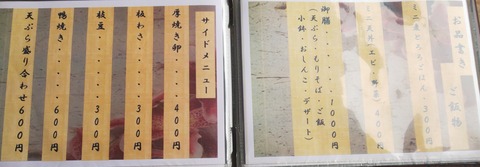 お品書き ご飯物
ミニ麦とろろごはん・・300円
ミニ天丼(エビ・野菜)400円
御膳・・・・・・1000円
(天ぷら・もりそば・ご飯
小鉢・おしんこ・デザート)
サイドメニュー
厚焼き卵・・・・400円
板わさ・・・・・300円
枝豆・・・・・・300円
鴨焼き・・・・・600円
天ぷら盛り合わせ600円